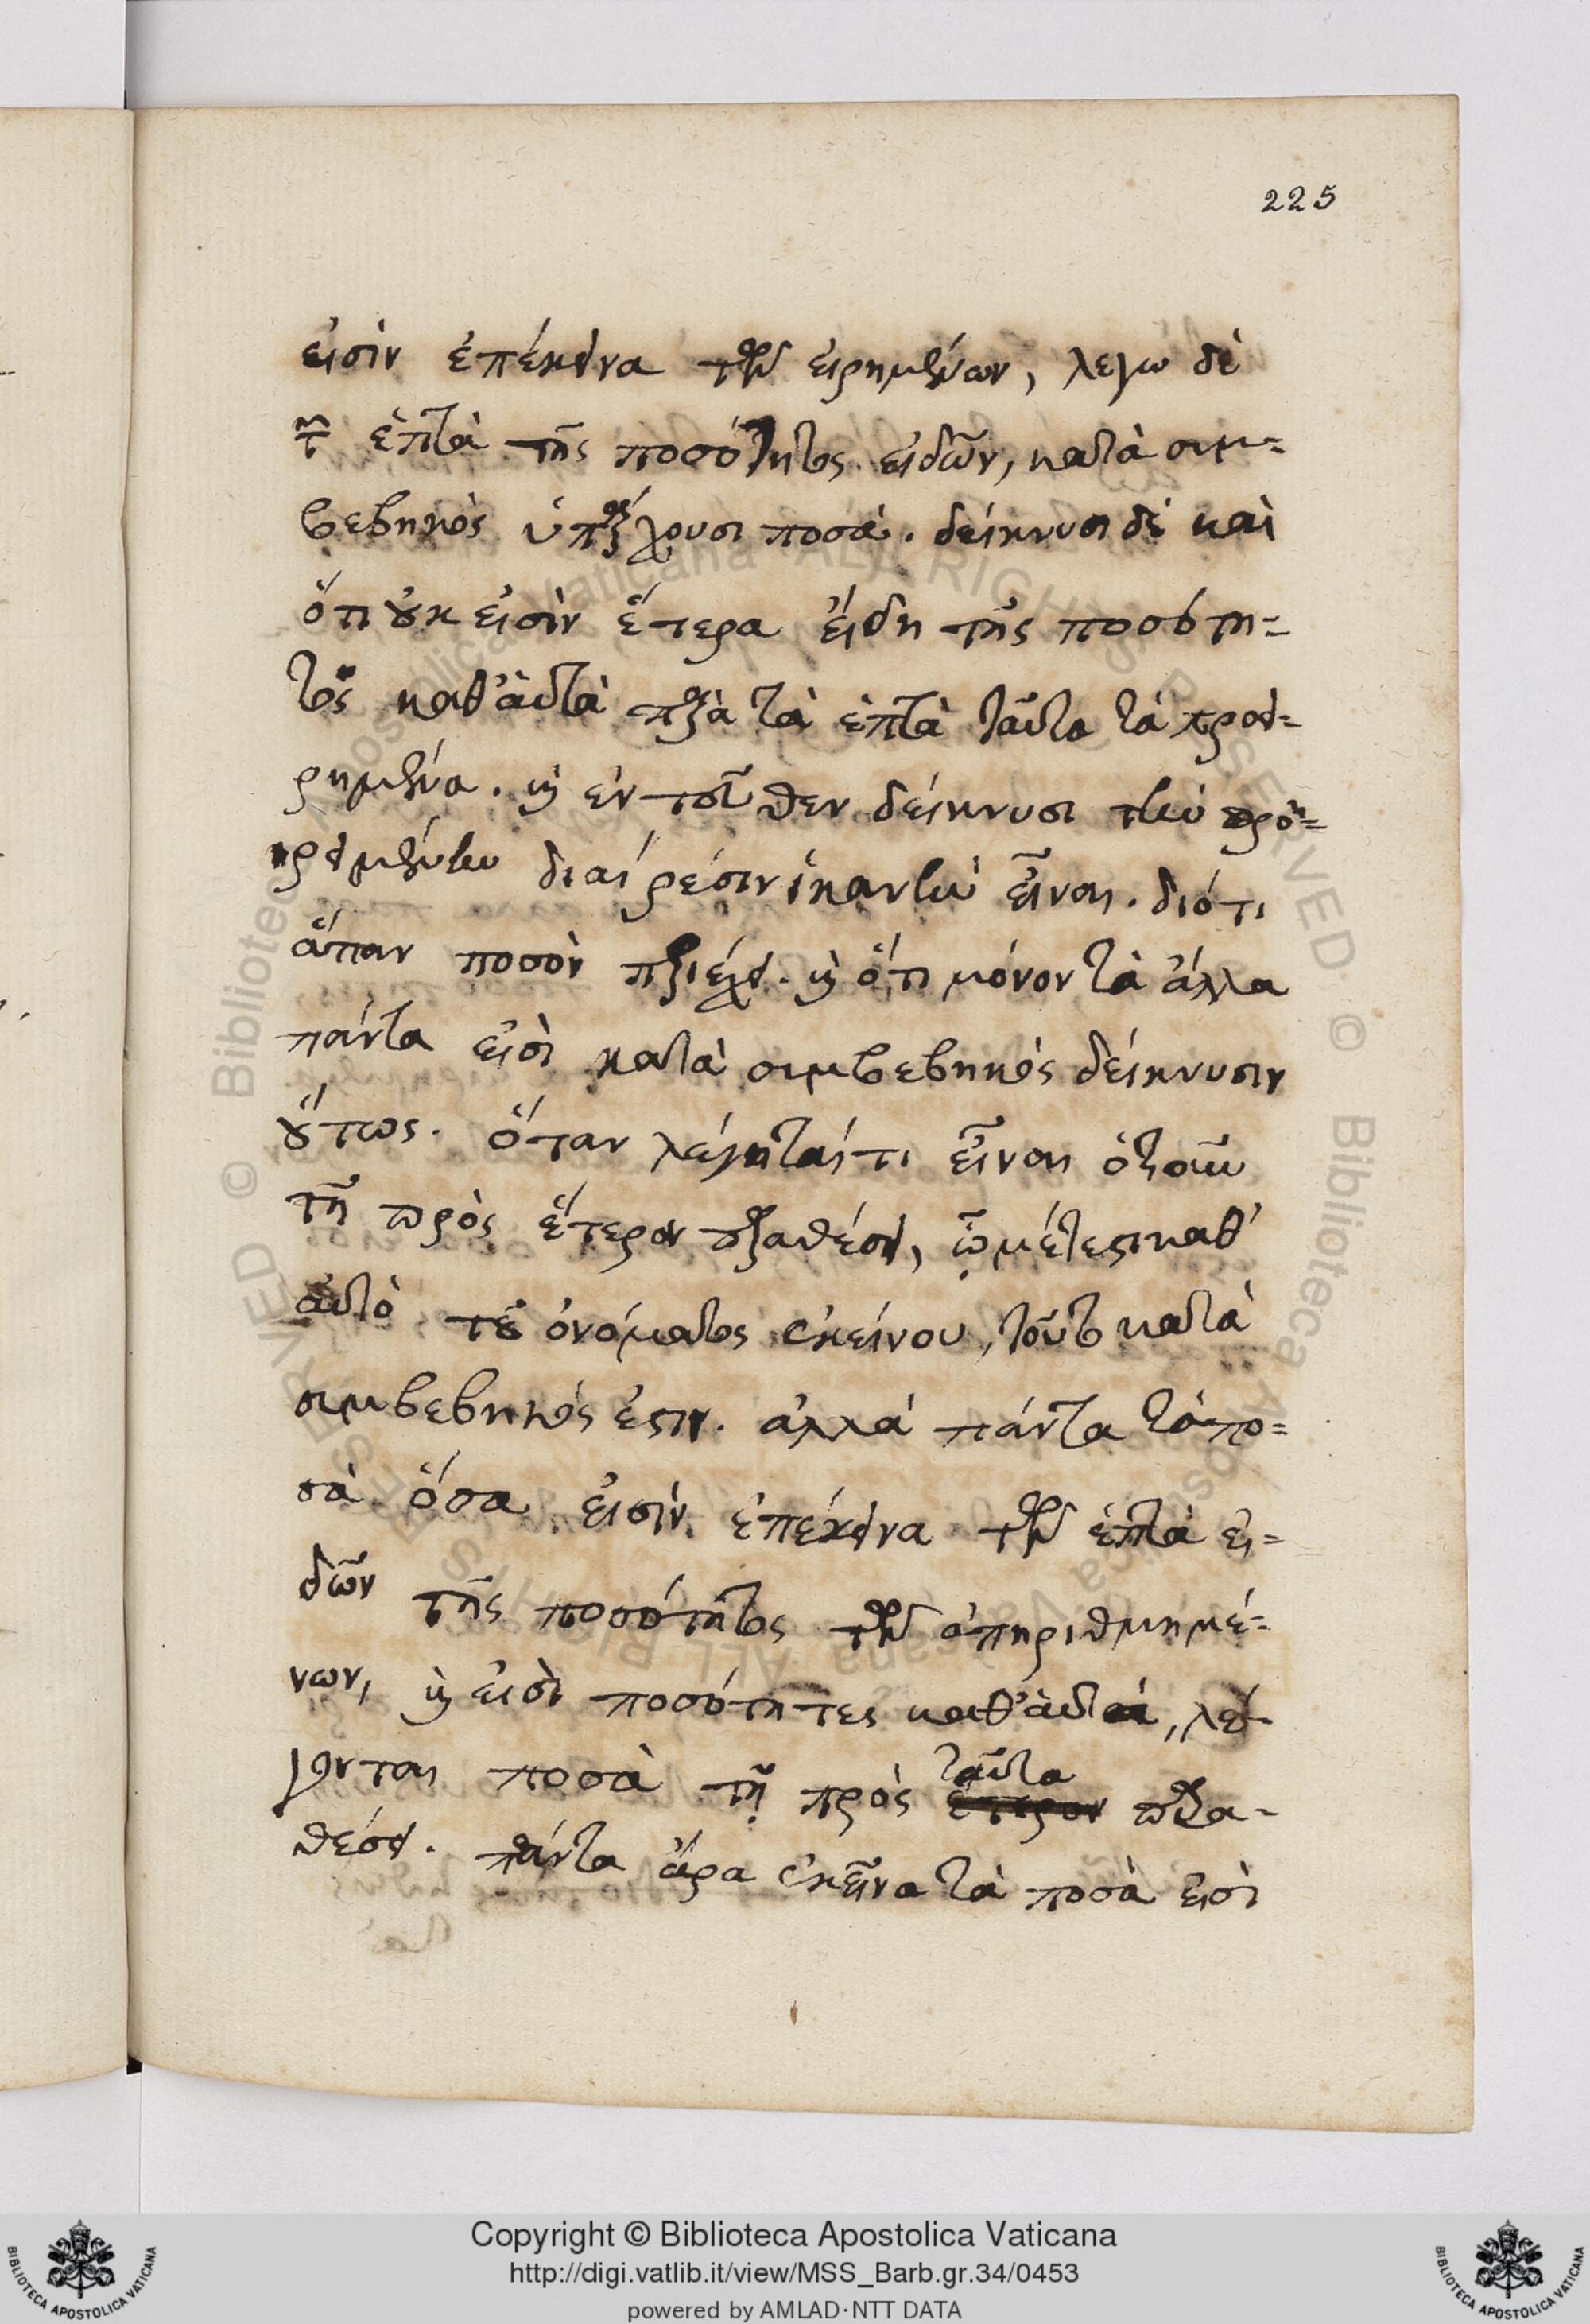 225
εἰσὶν ἐπέκεινα τῶν εἰρημένων, λεγω δὲ
τῶν ἑπτὰ τῆς ποσότητος εἰδῶν, κατὰ συμ=
βεβηκὸς ὑπάρχουσι ποσά. δείκνυσι δὲ καὶ
ὅτι οὐκ εἰσὶν ἕτερα εἴδη τῆς ποσότη=
τος καθ' ἁυτὰ παρὰ τὰ ἑπτὰ ταῦτα τὰ προει=
ρημένα. καὶ ἐν τοῦθεν δείκνυσι τὴν προ=
ειρημένην διαίρεσιν ἱκανὴν εἶναι. διότι
ἅπαν ποσὸν περιέχει. καὶ ὅτι μόνον τὰ ἄλλα
πάντα εἰσὶ κατὰ συμβεβηκὸς δείκνυσιν
οὕτως. ὅταν λέγηταί τι εἶναι ὁποιοῦν
τῇ πρὸς ἕτερον παραθέσει, ᾧ μέτεστι καθ'
αὑτὸ τοῦ ὀνόματος ἐκείνου, τοῦτο κατὰ
συμβεβηκός ἐστιν. ἀλλὰ πάντα τὰ πο=
σὰ ὅσα εἰσὶν ἐπέκεινα τῶν ἑπτὰ εἰ=
δῶν τῆς ποσότητος τῶν ἀπηριθμημέ=
νων, καὶ εἰσὶ ποσότητες καθ' ἁυτά, λέ=
γονται ποσὰ τῇ πρὸς ἕτερον ταῦτα παρα-
θέσει. πάντα ἄρα ἐκεῖνα τὰ ποσὰ εἰσὶ
Copyright © Biblioteca Apostolica Vaticana
http://digi.vatlib.it/view/MSS_Barb.gr.34/0453
powered by AMLAD·NTT DATA